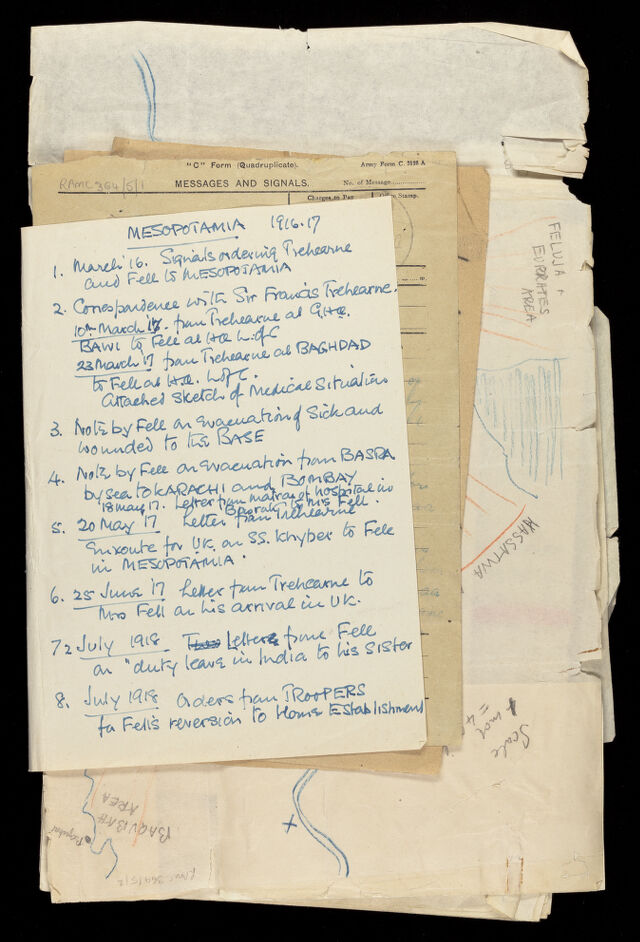 "C" Form (Quadruplicate).
Army Form C. 2123 A
RAMC 364/5/1
MESSAGES AND SIGNALS.
No. of Message
Charges to Pay
Office Stamp.
MESOPOTAMIA 1916.17
1. March '16. Signals ordering Trehearne
and Fell to MESOPOTAMIA
2. Correspondence with Sir Francis Trehearne.
10th March '17. from Trehearne at GHQ.
BAWI to Fell at HQ L of C
23 March '17 from Trehearne at BAGHDAD
to Fell at H.Q. L of C.
Attached Sketch of Medical Situation
3. Note by Fell on evacuation of Sick and
wounded to the BASE
4. Note by Fell on evacuation from BASRA
by sea to KARACHI and BOMBAY
18 May 17. Letter from matron of hospital in
to Mrs Fell.
5. 20 May 17 Letter from Trehearne
Enroute for UK. on SS. Khyber to Fell
in MESOPOTAMIA.
6. 25 June '17 Letter from Trehearne to
Mrs Fell on his arrival in UK.
72 July 1918 Letters from Fell
on "duty leave in India to his Sister
8. July 1918 Orders from TROOPERS
for Fell's reversion to Home Establishment
FELUJA +
EUPRATES
AREA
HASSAIWA
Scale
1 inch
= 4
BAQUBAH
AREA
RAMC 364/5/2